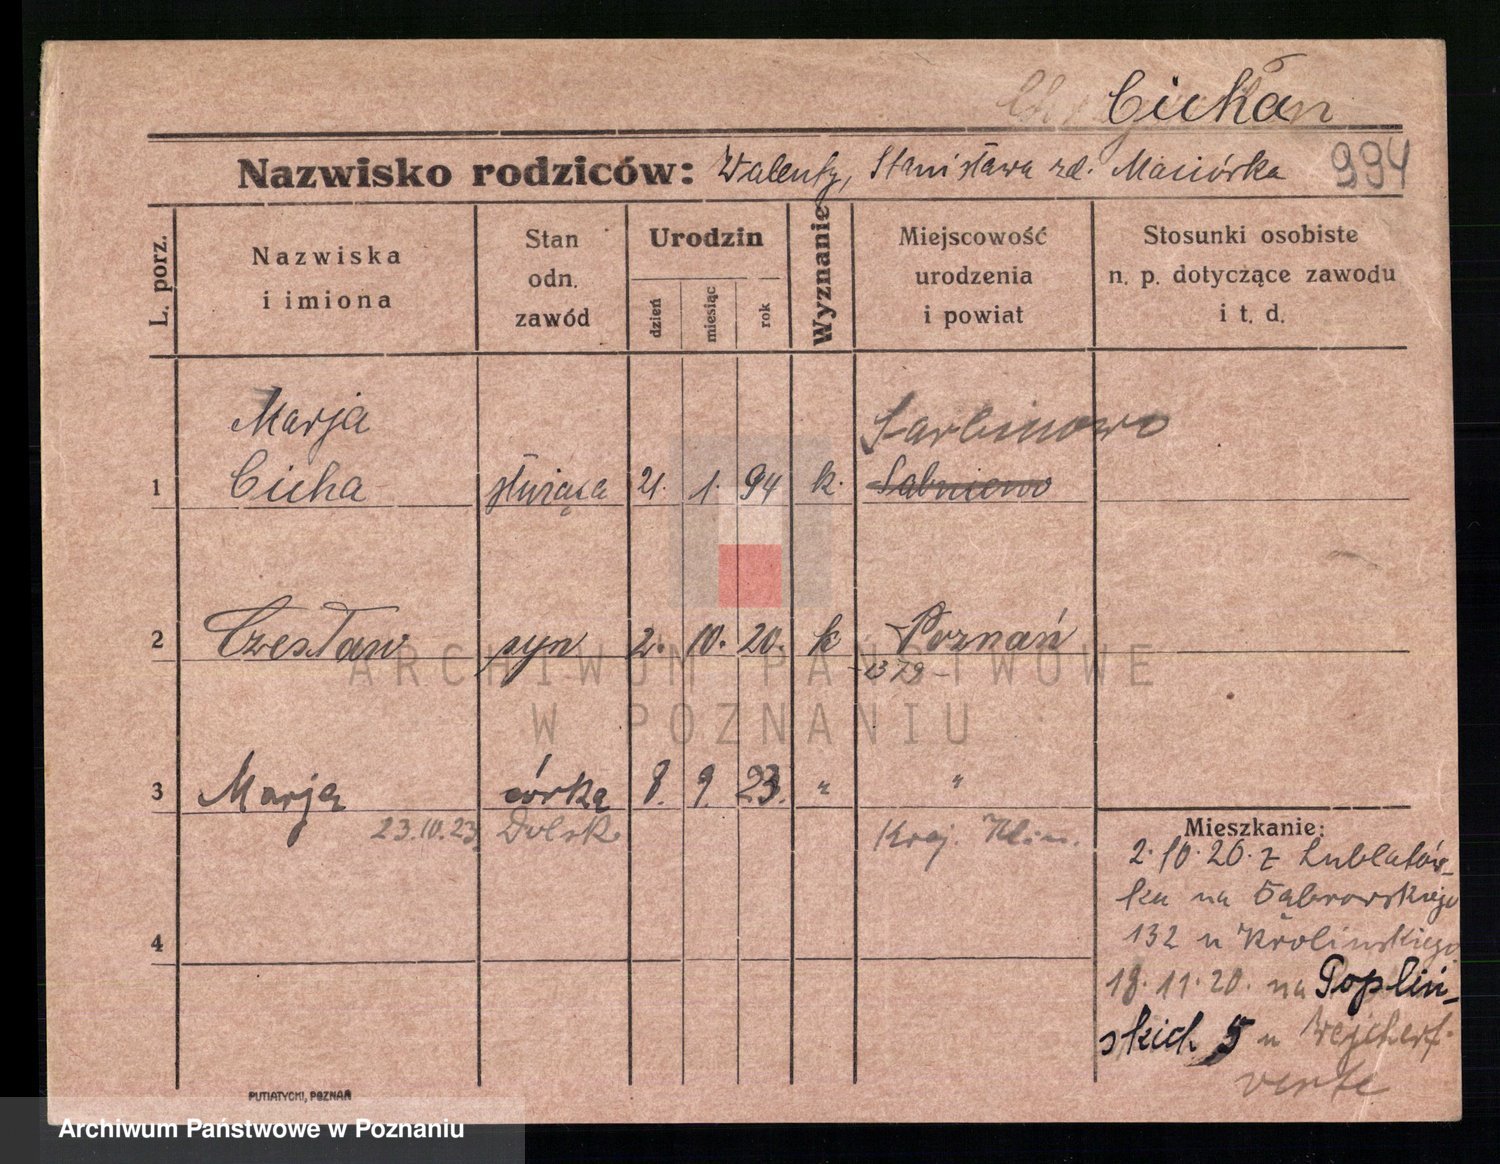 Cichań
Nazwisko rodziców: Walenty, Stanisława zd. Maciórka 994
L. porz.
Nazwiska i imiona
Stan odn. zawód
Urodzin
dzień
miesiąc
rok
Wyznanie
Miejscowość urodzenia i powiat
Stosunki osobiste n. p. dotyczące zawodu i t. d.
Marja Sarbinowo
1 Cicha służąca 21. 1. 94 k. Sabniewo
2 Czesław syn 2. 10. 20. k Poznań
-1379-
3 Marja córka 8. 9. 23. " "
23.10.23. Dolsk. Kraj. Klin.
Mieszkanie:
2.10.20. z Lublatów-
ka na Dąbrowskiego
132 u Królinskiego
18.11.20. na Popliń-
skich 5 u
verte
4
PUTIATYCKI, POZNAŃ
ARCHIWUM PAŃSTWOWE
W POZNANIU
Archiwum Państwowe w Poznaniu